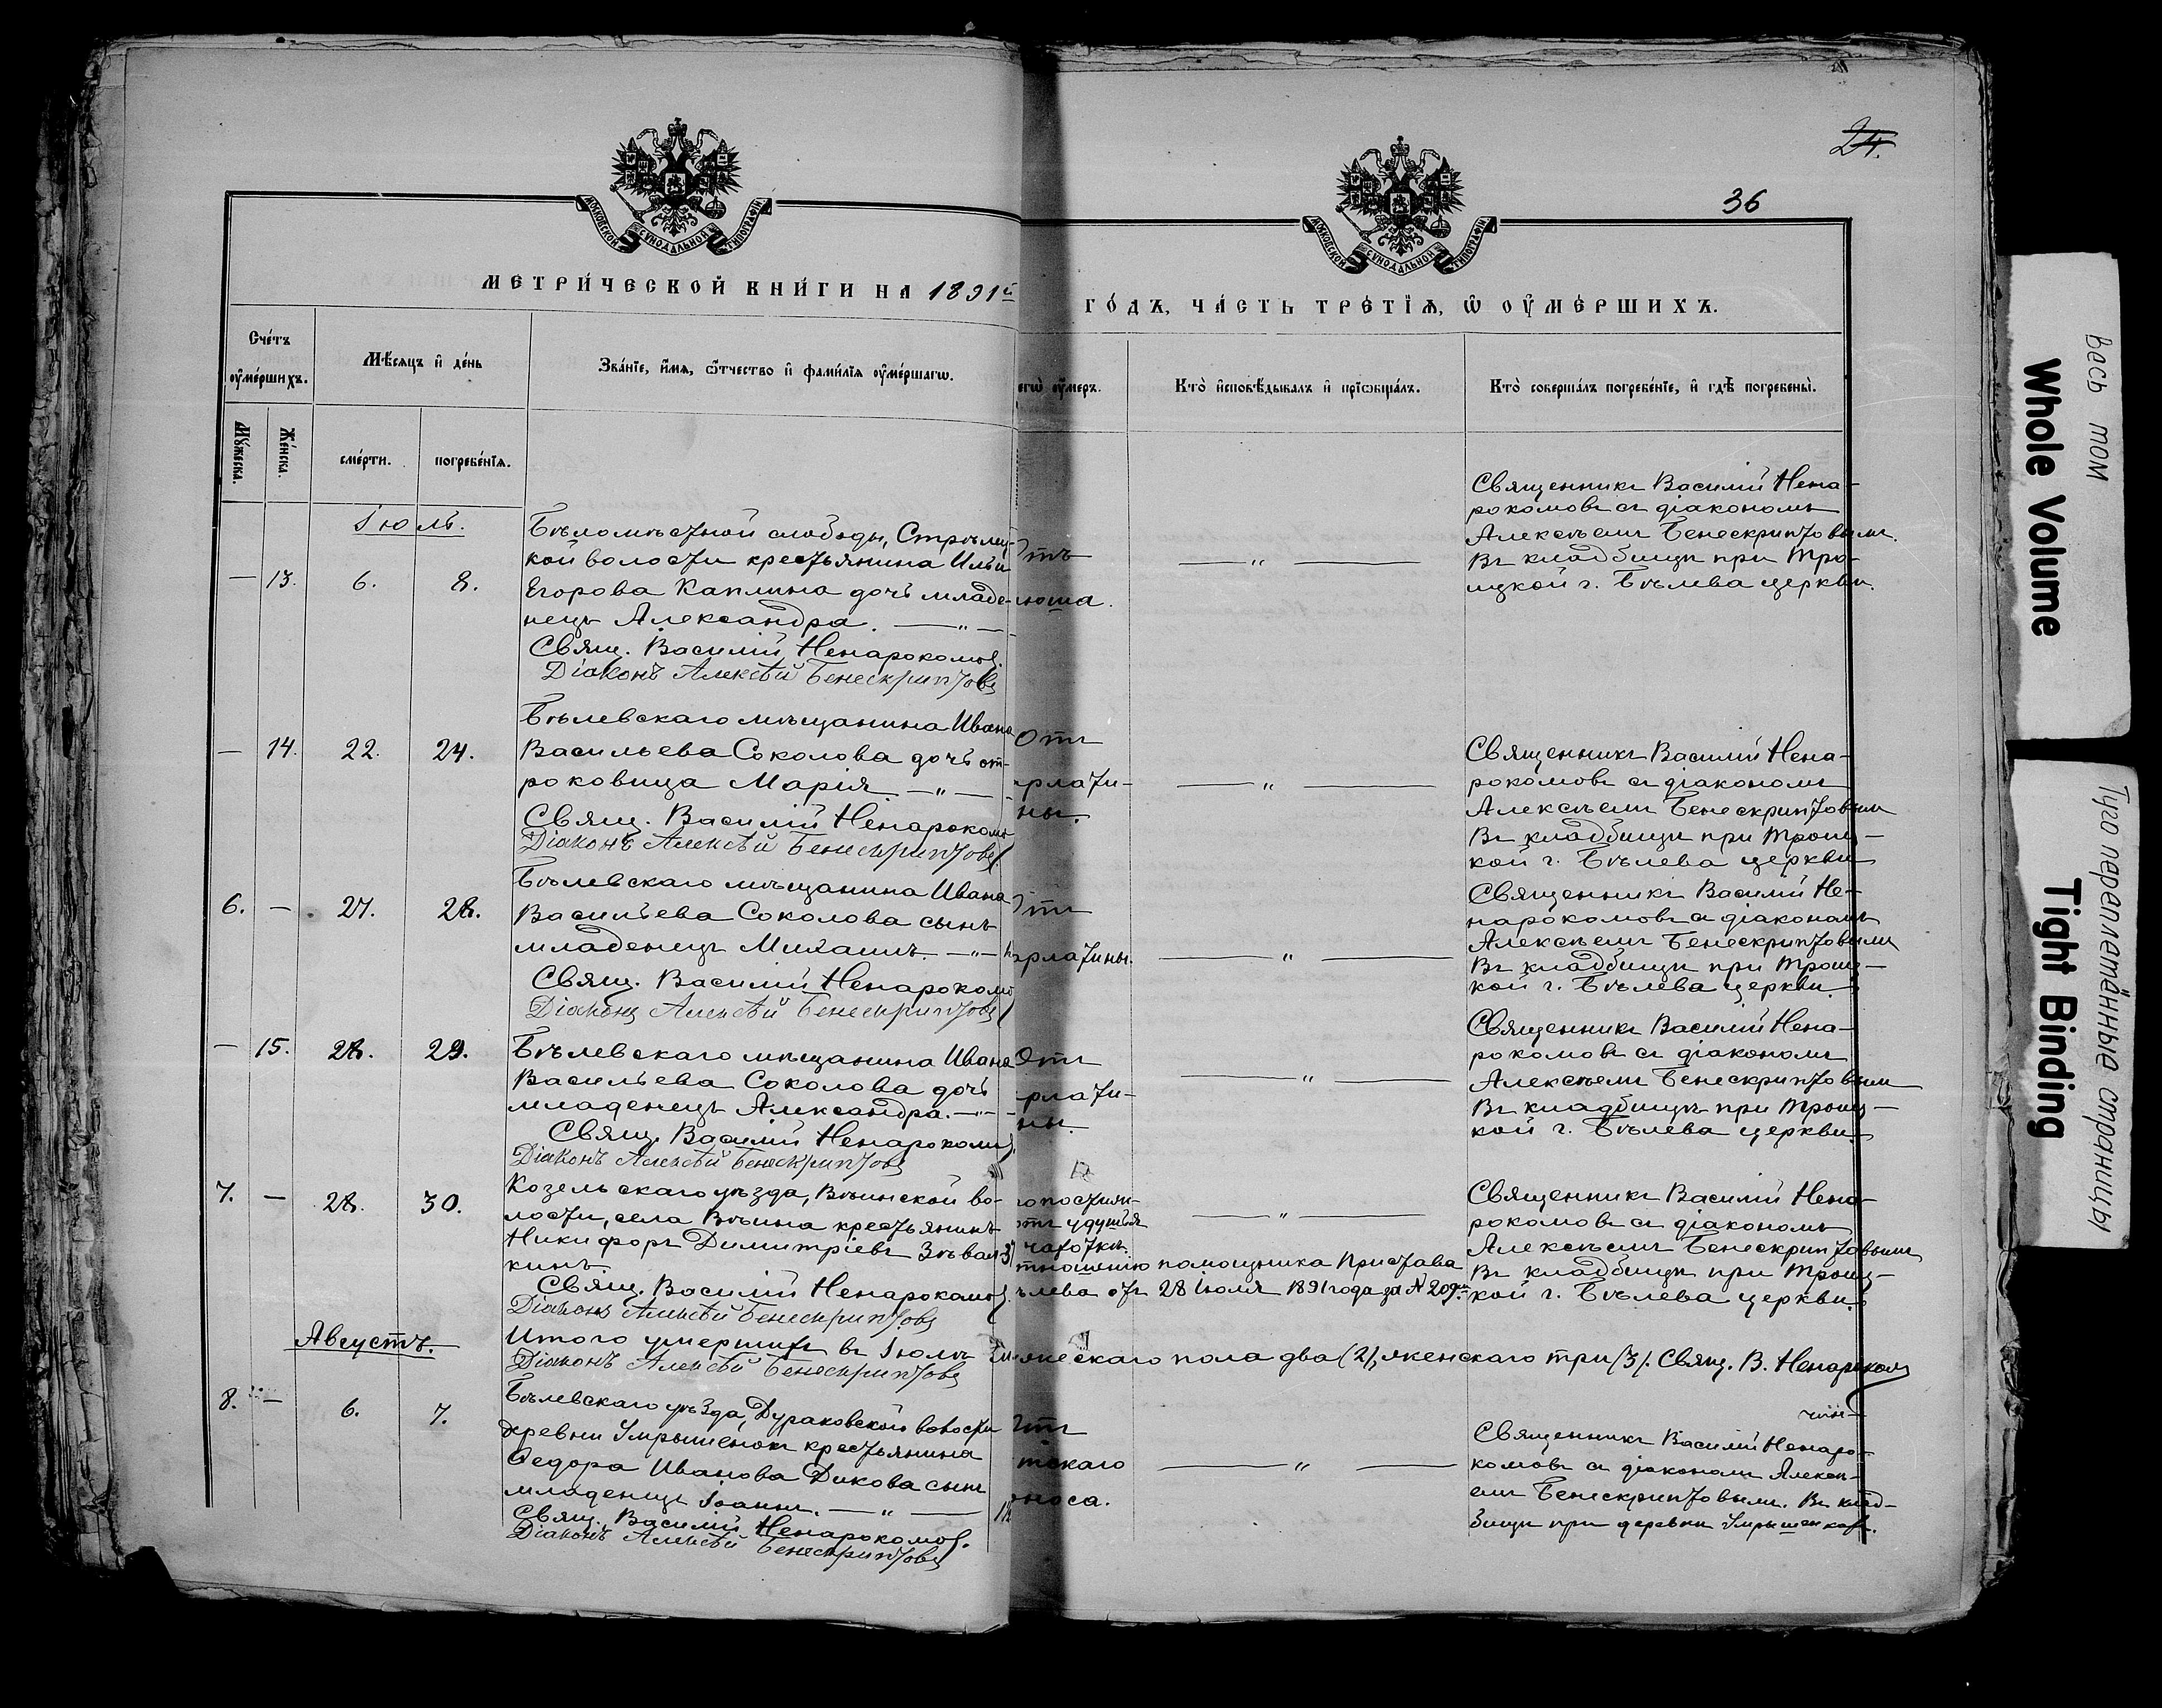 24.
36
МОСКОВСКОЙ СѴНОДАЛЬНОЙ ТИПОГРАФІИ
МОСКОВСКОЙ СѴНОДАЛЬНОЙ ТИПОГРАФІИ
МЕТРИ́ЧЕСКОЙ КНИ́ГИ НА 1891й
ГО́ДЪ, ЧА́СТЬ ТРЕ́ТІѦ, Ѡ ОУ҆МЕ́РШИХЪ.
Сче́тъ
оу҆ме́ршихъ.
Мѣ́сяцъ и҆ де́нь
Зва́нїе, и҆́мя, ѻ҆́тчество и҆ фами́лїя оу҆ме́ршагѡ.
егѡ̀ оу҆́меръ.
Кто̀ и҆сповѣ́дывалъ и҆ прїѡбща́лъ.
Кто̀ соверша́лъ погребе́нїе, и҆ гдѣ̀ погребены̀.
Му́жеска.
Же́нска.
сме́рти.
погребе́нїя.
Іюль.
— 13. 6. 8.
Бѣломѣстной слободы, Стрѣлец-
кой волости крестьянина Ильи
Егорова Каплина дочь младе-
нецъ Александра. — " —
Свящ. Василій Ненарокомов.
Діаконъ Алексѣй Бенескриптовъ
Отъ
юша.
— " —
Священникъ Василій Нена-
рокомовъ съ діакономъ
Алексѣемъ Бенескриптовымъ.
Въ кладбищѣ при Тро-
ицкой г. Бѣлева церкви.
— 14. 22. 24.
Бѣлевскаго мѣщанина Ивана
Васильева Соколова дочь от-
роковица Марія. — " —
Свящ. Василій Ненарокомов
Діаконъ Алексѣй Бенескриптовъ.
Отъ
рлати-
ны.
— " —
Священникъ Василій Нена-
рокомовъ съ діакономъ
Алексѣемъ Бенескриптовым
Въ кладбищѣ при Троиц-
кой г. Бѣлева церкви
6. — 27. 28.
Бѣлевскаго мѣщанина Ивана
Васильева Соколова сынъ
младенецъ Михаилъ. — " —
Свящ. Василій Ненарокомов
Діаконъ Алексѣй Бенескриптовъ
Отъ
арлатины.
— " —
Священникъ Василій Не-
нарокомовъ съ діакономъ
Алексѣемъ Бенескриптовымъ
Въ кладбищѣ при Троиц-
кой г. Бѣлева церкви.
— 15. 28. 29.
Бѣлевскаго мѣщанина Ивана
Васильева Соколова дочь
младенецъ Александра. — " —
Свящ. Василій Ненарокомов.
Діаконъ Алексѣй Бенескриптовъ
Отъ
рлати-
ны.
— " —
Священникъ Василій Нена-
рокомовъ съ діакономъ
Алексѣемъ Бенескриптовым
Въ кладбищѣ при Троиц-
кой г. Бѣлева церкви
7. — 28. 30.
Козельскаго уѣзда, Вѣинской во-
лости, села Вѣина крестьянинъ
Никифоръ Димитріевъ Зѣвал-
кинъ.
Свящ. Василій Ненарокомов.
Діаконъ Алексѣй Бенескриптовъ
опостиян-
отъ удушья
чахотки.
тношенію помощника Пристава
ѣлева отъ 28 Іюля 1891 года за № 209.
— " —
Священникъ Василій Нена-
рокомовъ съ діакономъ
Алексѣемъ Бенескриптовымъ
Въ кладбищѣ при Троиц-
кой г. Бѣлева церкви.
Итого умершихъ въ Іюлѣ м жескаго пола два (2), женскаго три (3). Свящ. В. Ненарокомов
Діаконъ Алексѣй Бенескриптовъ
Августъ.
8. — 6. 7.
Бѣлевскаго уѣзда, Дураковской волости
деревни Умрышенокъ крестьянина
Ѳедора Иванова Дикова сынъ
младенецъ Іоаннъ. — " —
Свящ. Василій Ненарокомов.
Діаконъ Алексѣй Бенескриптовъ
Отъ
тскаго
оноса.
— " —
Священникъ Василій Ненаро-
комовъ съ діакономъ Алексѣ-
емъ Бенескриптовымъ. Въ клад-
бищѣ при деревни Умрышенкахъ.
весь том
Whole Volume
Туго переплетённые страницы
Tight Binding